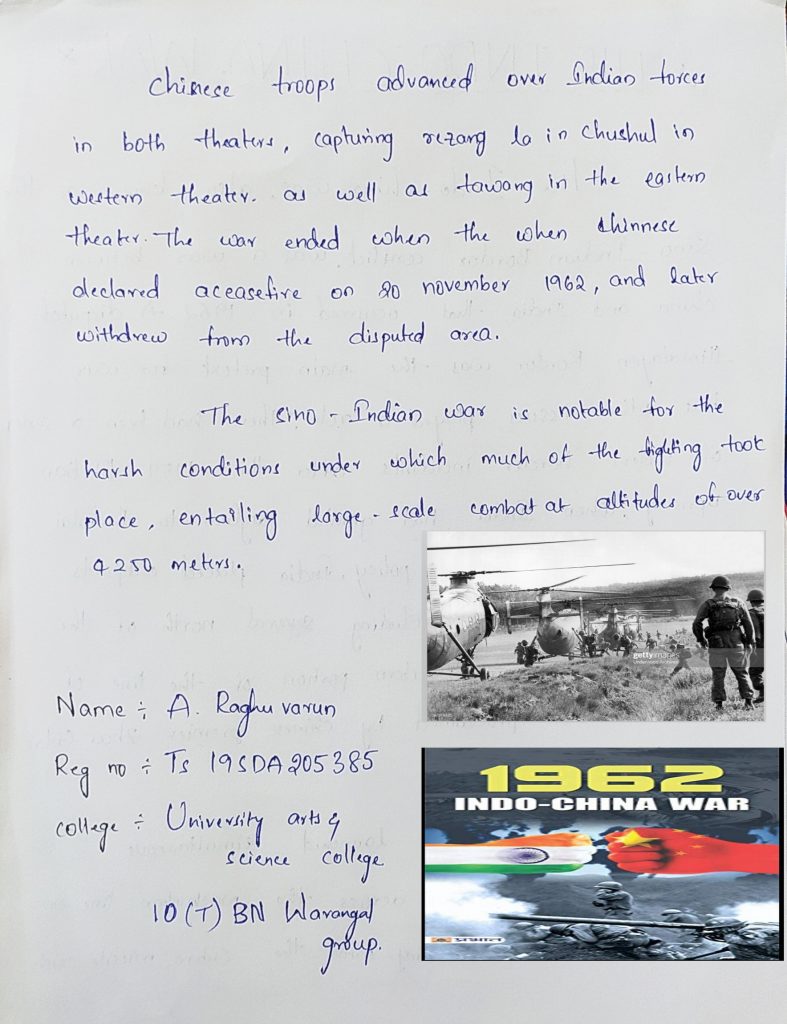 Chinese troops advanced over Indian forces
in both theaters, capturing rezang la in Chushul in
western theater. as well as tawang in the eastern
theater. The war ended when the when Chinnese
declared aceasefire on 20 november 1962, and later
withdrew from the disputed area.
The sino - Indian war is notable for the
harsh conditions under which much of the fighting took
place, entailing large - scale combat at altitudes of over
4250 meters.
gettyimages
Name ÷ A. Raghu varun
Reg no ÷ Ts 19SDA205385
college ÷ University arts &
science college
10 (T) BN Warangal
group.
1962
INDO-CHINA WAR
प्रभात